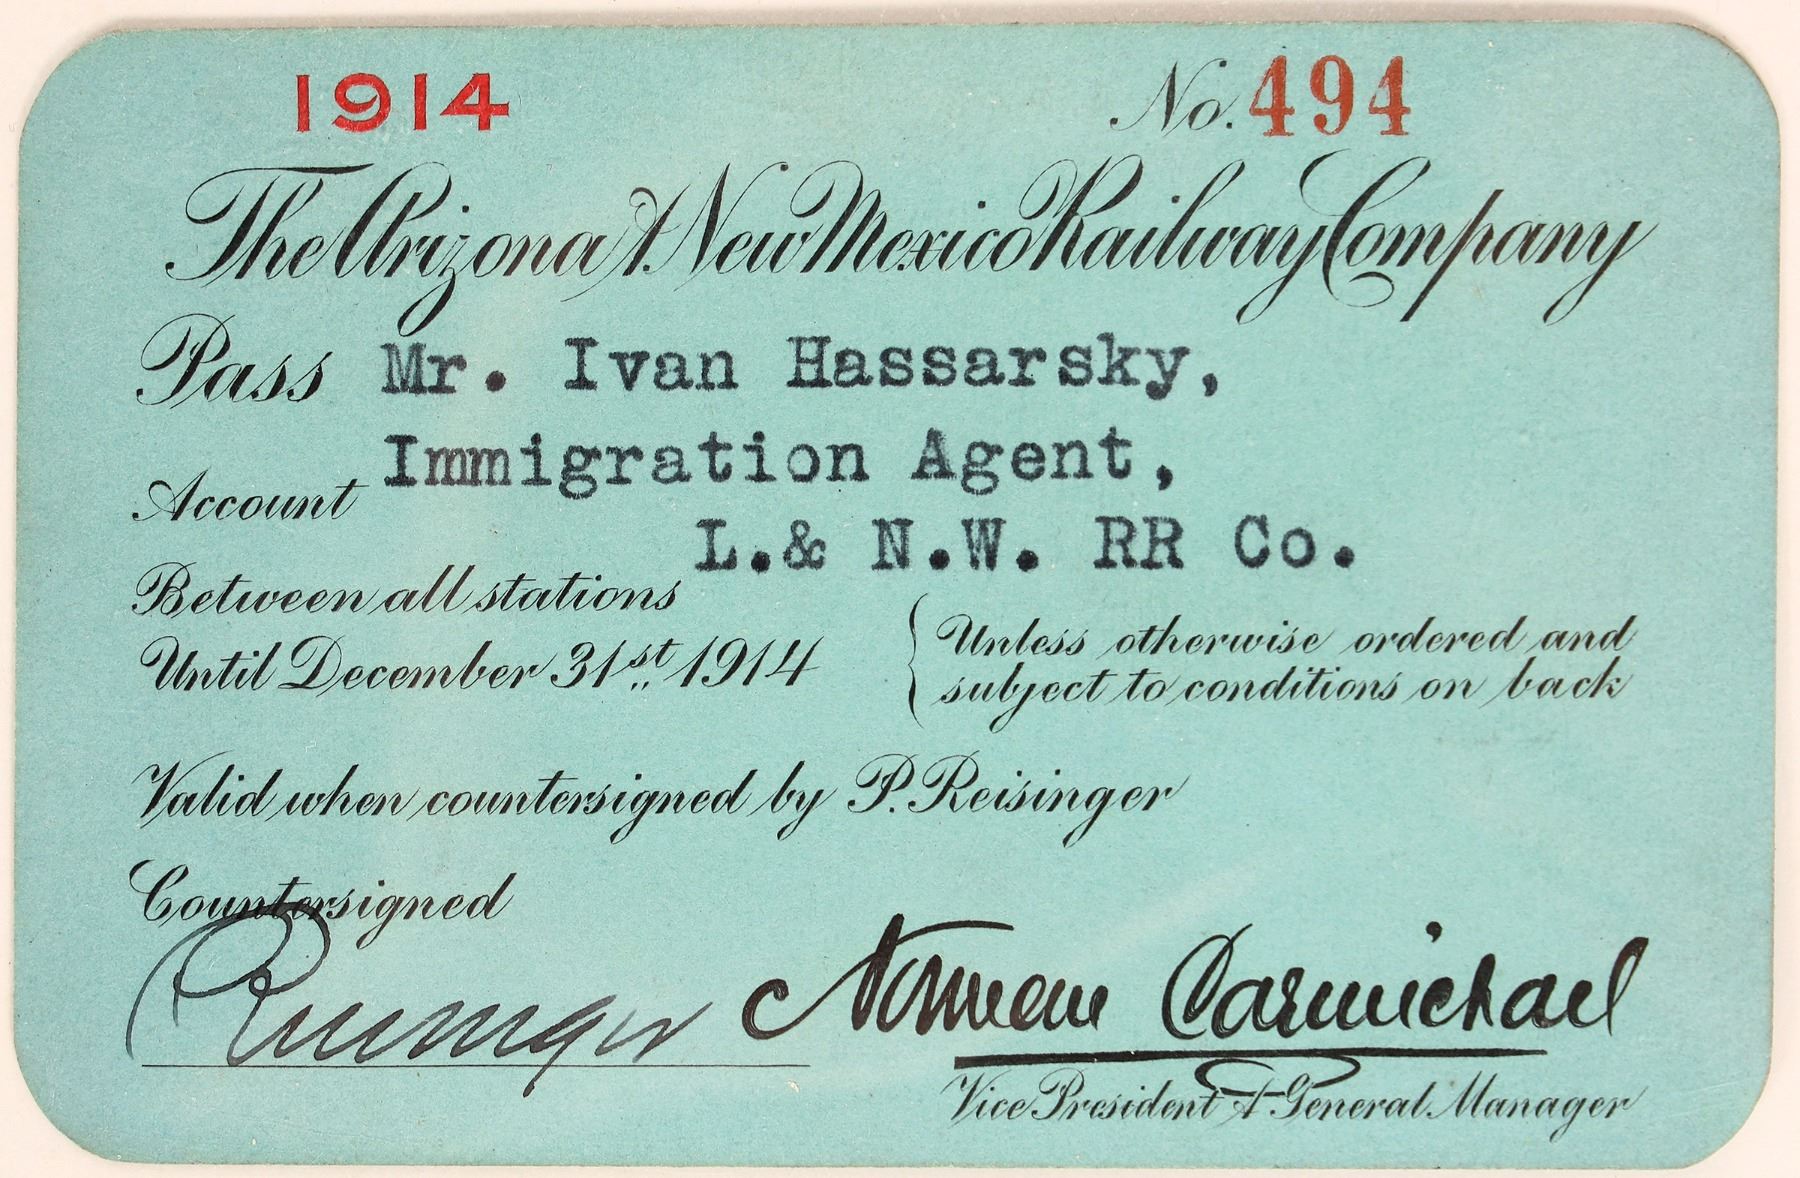 1914 No. 494
The Arizona & New Mexico Railway Company
Pass Mr. Ivan Hassarsky,
Immigration Agent,
Account
L.& N.W. RR Co.
Between all stations
Until December 31st 1914
Unless otherwise ordered and
subject to conditions on back
Valid when countersigned by P. Reisinger
Countersigned
P Reisinger Norman Carmichael
Vice President & General Manager